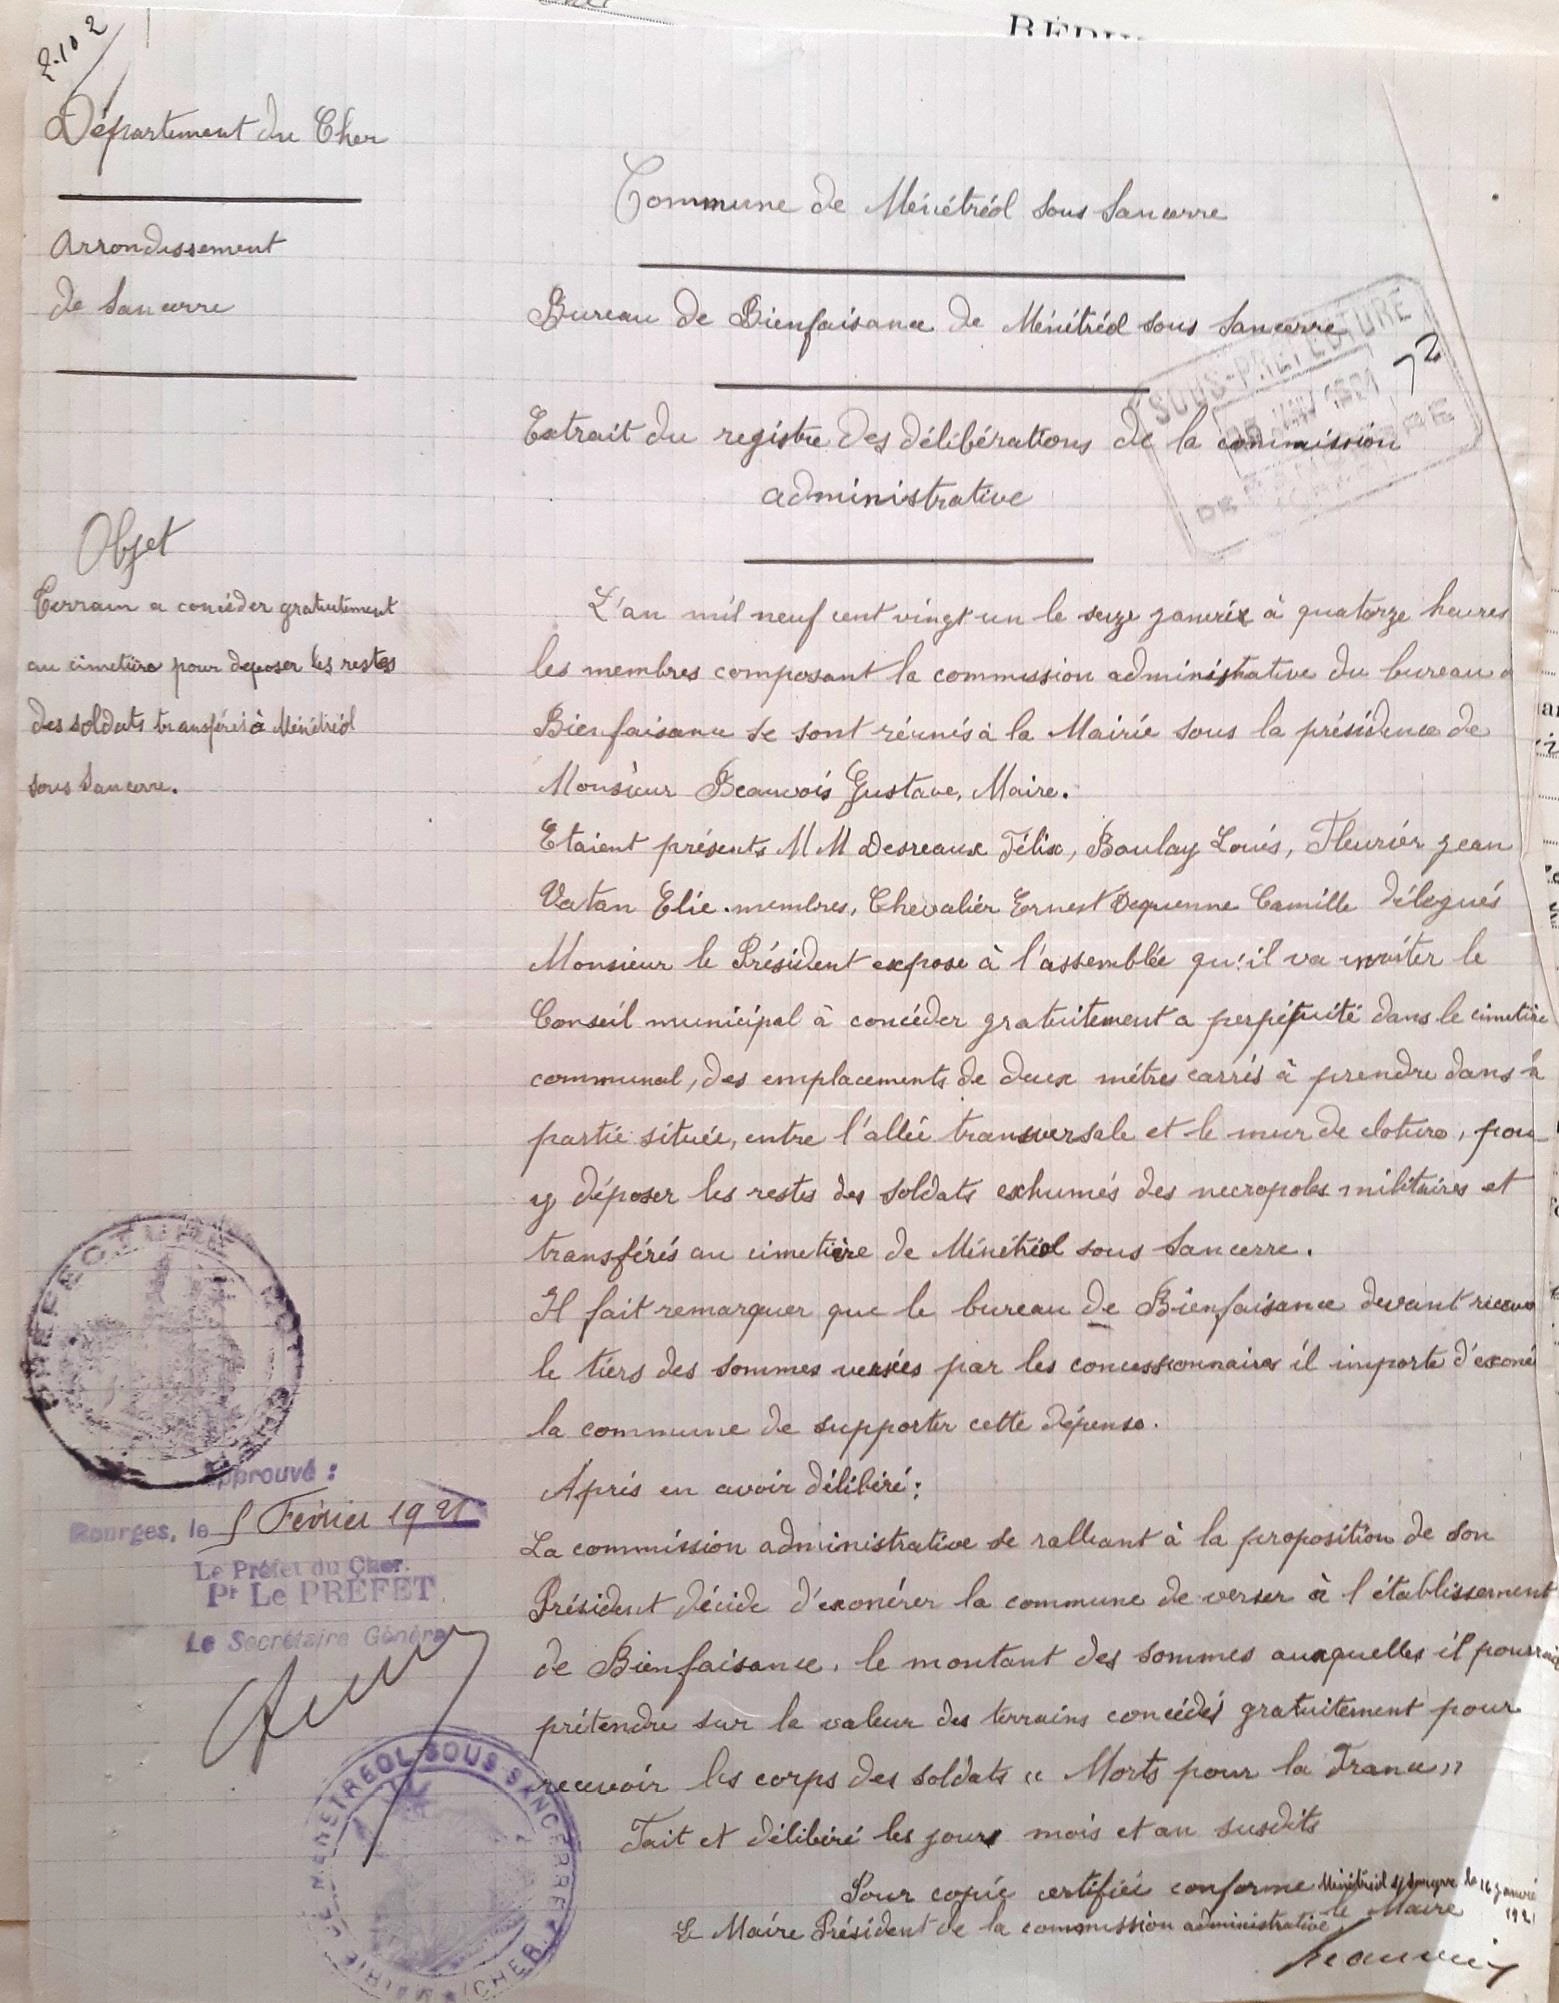 2.10 2
Département du Cher
Arrondissement
de Sancerre
Objet
Terrain a concéder gratuitement
au cimetière pour deposer les restes
des soldats transférés à Ménétréol
sous Sancerre.
Commune de Ménétréol sous Sancerre
Bureau de Bienfaisance de Ménétréol sous Sancerre
72
SOUS-PRÉFECTURE
JANV 1921
DE SANCERRE
Extrait du registre des délibérations de la commission
administrative
L'an mil neuf cent vingt un le seize janvier à quatorze heures
les membres composant la commission administrative du bureau d
Bienfaisance se sont réunis à la Mairie sous la présidence de
Monsieur Beauvois Gustave, Maire.
Etaient présents MM Desreaux Félix, Boulay Louis, Fleurier Jean
Vatan Elie. membres, Chevalier Ernest Dequenne Camille délégués
Monsieur le Président expose à l'assemblée qu'il va inviter le
Conseil municipal à concéder gratuitement a perpétuité dans le cimetière
communal, des emplacements de deux mètres carrés à prendre dans la
partie située, entre l'allée transversale et le mur de cloture, pou
y déposer les restes des soldats exhumés des necropoles militaires et
transférés au cimetière de Ménétréol sous Sancerre.
Il fait remarquer que le bureau de Bienfaisance devant recevo
le tiers des sommes versées par les concessionnaires il importe d'exoné
la commune de supporter cette dépense.
Après en avoir délibéré:
La commission administrative se ralliant à la proposition de son
Président décide d'exonérer la commune de verser à l'établissement
de Bienfaisance, le montant des sommes auxquelles il pourrai
prétendre sur la valeur des terrains concédés gratuitement pour
recevoir les corps des soldats « Morts pour la France »
Fait et délibéré les jours mois et an susdits
Pour copie certifiée conforme Ménétréol s/Sancerre le 16 janvier
1921
Le Maire Président de la commission administrative le Maire
Beauvois
PRÉFECTURE DU CHER
Approuvé :
Bourges, le 5 Février 1921
Le Préfet du Cher.
Pr LE PRÉFET
Le Secrétaire Général
MAIRIE DE MENETREOL-SOUS-SANCERRE (CHER)